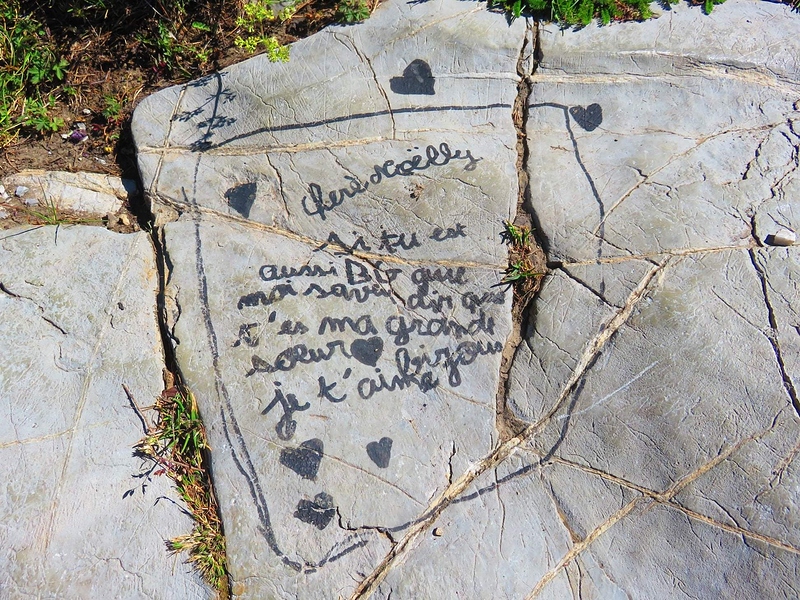 cherè Noëlly
si tu est
aussi BIO que
moi savoir dir que
t'es ma grande
sœur bizous
je t'aime